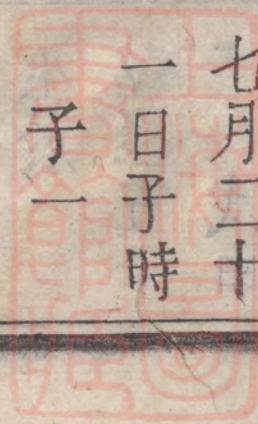 七月二十
一日子時
子一